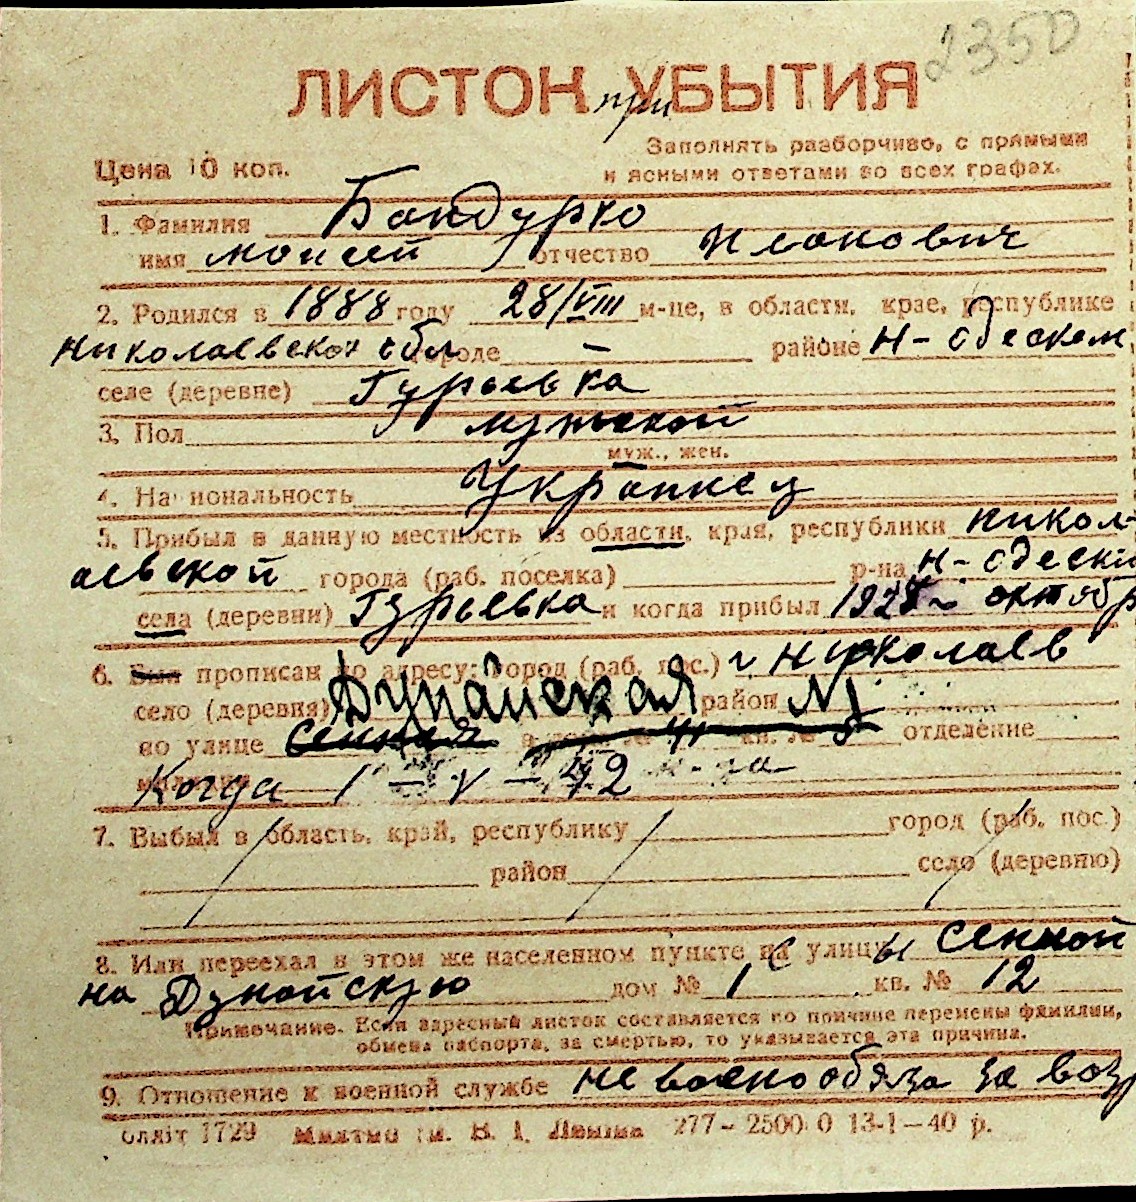 2350
ЛИСТОК при УБЫТИЯ
Заполнять разборчиво, с прямыми
Цена 10 коп. и ясными ответами во всех графах.
1. Фамилия Бандурко
имя моисей отчество Исакович
2. Родился в 1888 году 28/VIII м-це, в области, крае, республике
николаевской обл городе — районе Н-Одеском
селе (деревне) Гурьевка
3. Пол мужской
муж., жен.
4. Национальность Украинец
5. Прибыл в данную местность из области, края, республики никол-
аевской города (раб. поселка) р-на Н-Одески
села (деревни) Гурьевка и когда прибыл 192 октябр
6. Был прописан по адресу: город (раб. пос.) г. Николаев
село (деревня) Дунайская район
по улице Сенная кв. № отделение
Когда 1-V-42
7. Выбыл в область, край, республику город (раб. пос.)
район село (деревню)
8. Или переехал в этом же населенном пункте на улицу с ы Сенной
на Дунайскую дом № 1 кв. № 12
Примечание. Если адресный листок составляется по причине перемены фамилии,
обмена паспорта, за смертью, то указывается эта причина.
9. Отношение к военной службе не военообяза за возр
олліт 1729 ім. В. І. Леніна 277-2500 0 13-1-40 р.